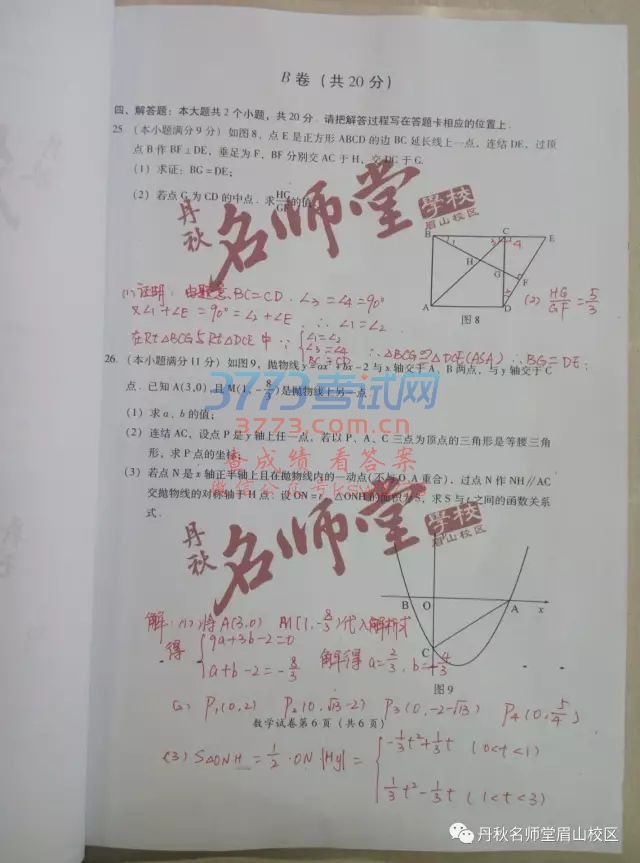 B 卷（共 20 分）
四、解答题：本大题共 2 个小题，共 20 分．请把解答过程写在答题卡相应的位置上．
25．（本小题满分 9 分）如图 8，点 E 是正方形 ABCD 的边 BC 延长线上一点，连结 DE，过顶
点 B 作 BF⊥DE，垂足为 F，BF 分别交 AC 于 H，交 DC 于 G．
（1）求证：BG＝DE；
（2）若点 G 为 CD 的中点，求 HG/GF 的值．
丹秋 名师堂 学校
眉山校区
B C E
1 3 4
H
G
F
A D
图 8
(2) HG/GF = 5/3
(1) 证明：由题意，BC=CD．∠3=∠4=90°
又∠1+∠E=90°=∠2+∠E．∴∠1=∠2
在Rt△BCG与Rt△DCE中 ∵ {∠1=∠2
∠3=∠4
BC=CD
∴△BCG≌△DCE(ASA) ∴BG=DE；
26．（本小题满分 11 分）如图 9，抛物线 y＝ax²＋bx－2 与 x 轴交于 A、B 两点，与 y 轴交于 C
点．已知 A(3,0)，且 M(1，－8/3)是抛物线上另一点．
3773考试网
www.3773.com.cn
（1）求 a、b 的值；
（2）连结 AC，设点 P 是 y 轴上任一点，若以 P、A、C 三点为顶点的三角形是等腰三角
形，求 P 点的坐标；
查成绩 看答案
（3）若点 N 是 x 轴正半轴上且在抛物线内的一动点(不与 O、A 重合)，过点 N 作 NH∥AC
交抛物线的对称轴于 H 点．设 ON＝t，△ONH 的面积为 S，求 S 与 t 之间的函数关系
式．
丹秋 名师堂 学校
眉山校区
B O A x
C
图 9
解：(1) 将A(3,0) M(1,-8/3)代入解析式
得 {9a+3b-2=0
a+b-2=-8/3
解得 a=2/3, b=-4/3
(2) P₁(0,2) P₂(0,√13-2) P₃(0,-2-√13) P₄(0,5/4)
数学试卷第 6 页（共 6 页）
(3) S△ONH = 1/2·ON|Hy| = {-1/3t²+1/3t (0<t<1)
1/3t²-1/3t (1<t<3)
丹秋名师堂眉山校区